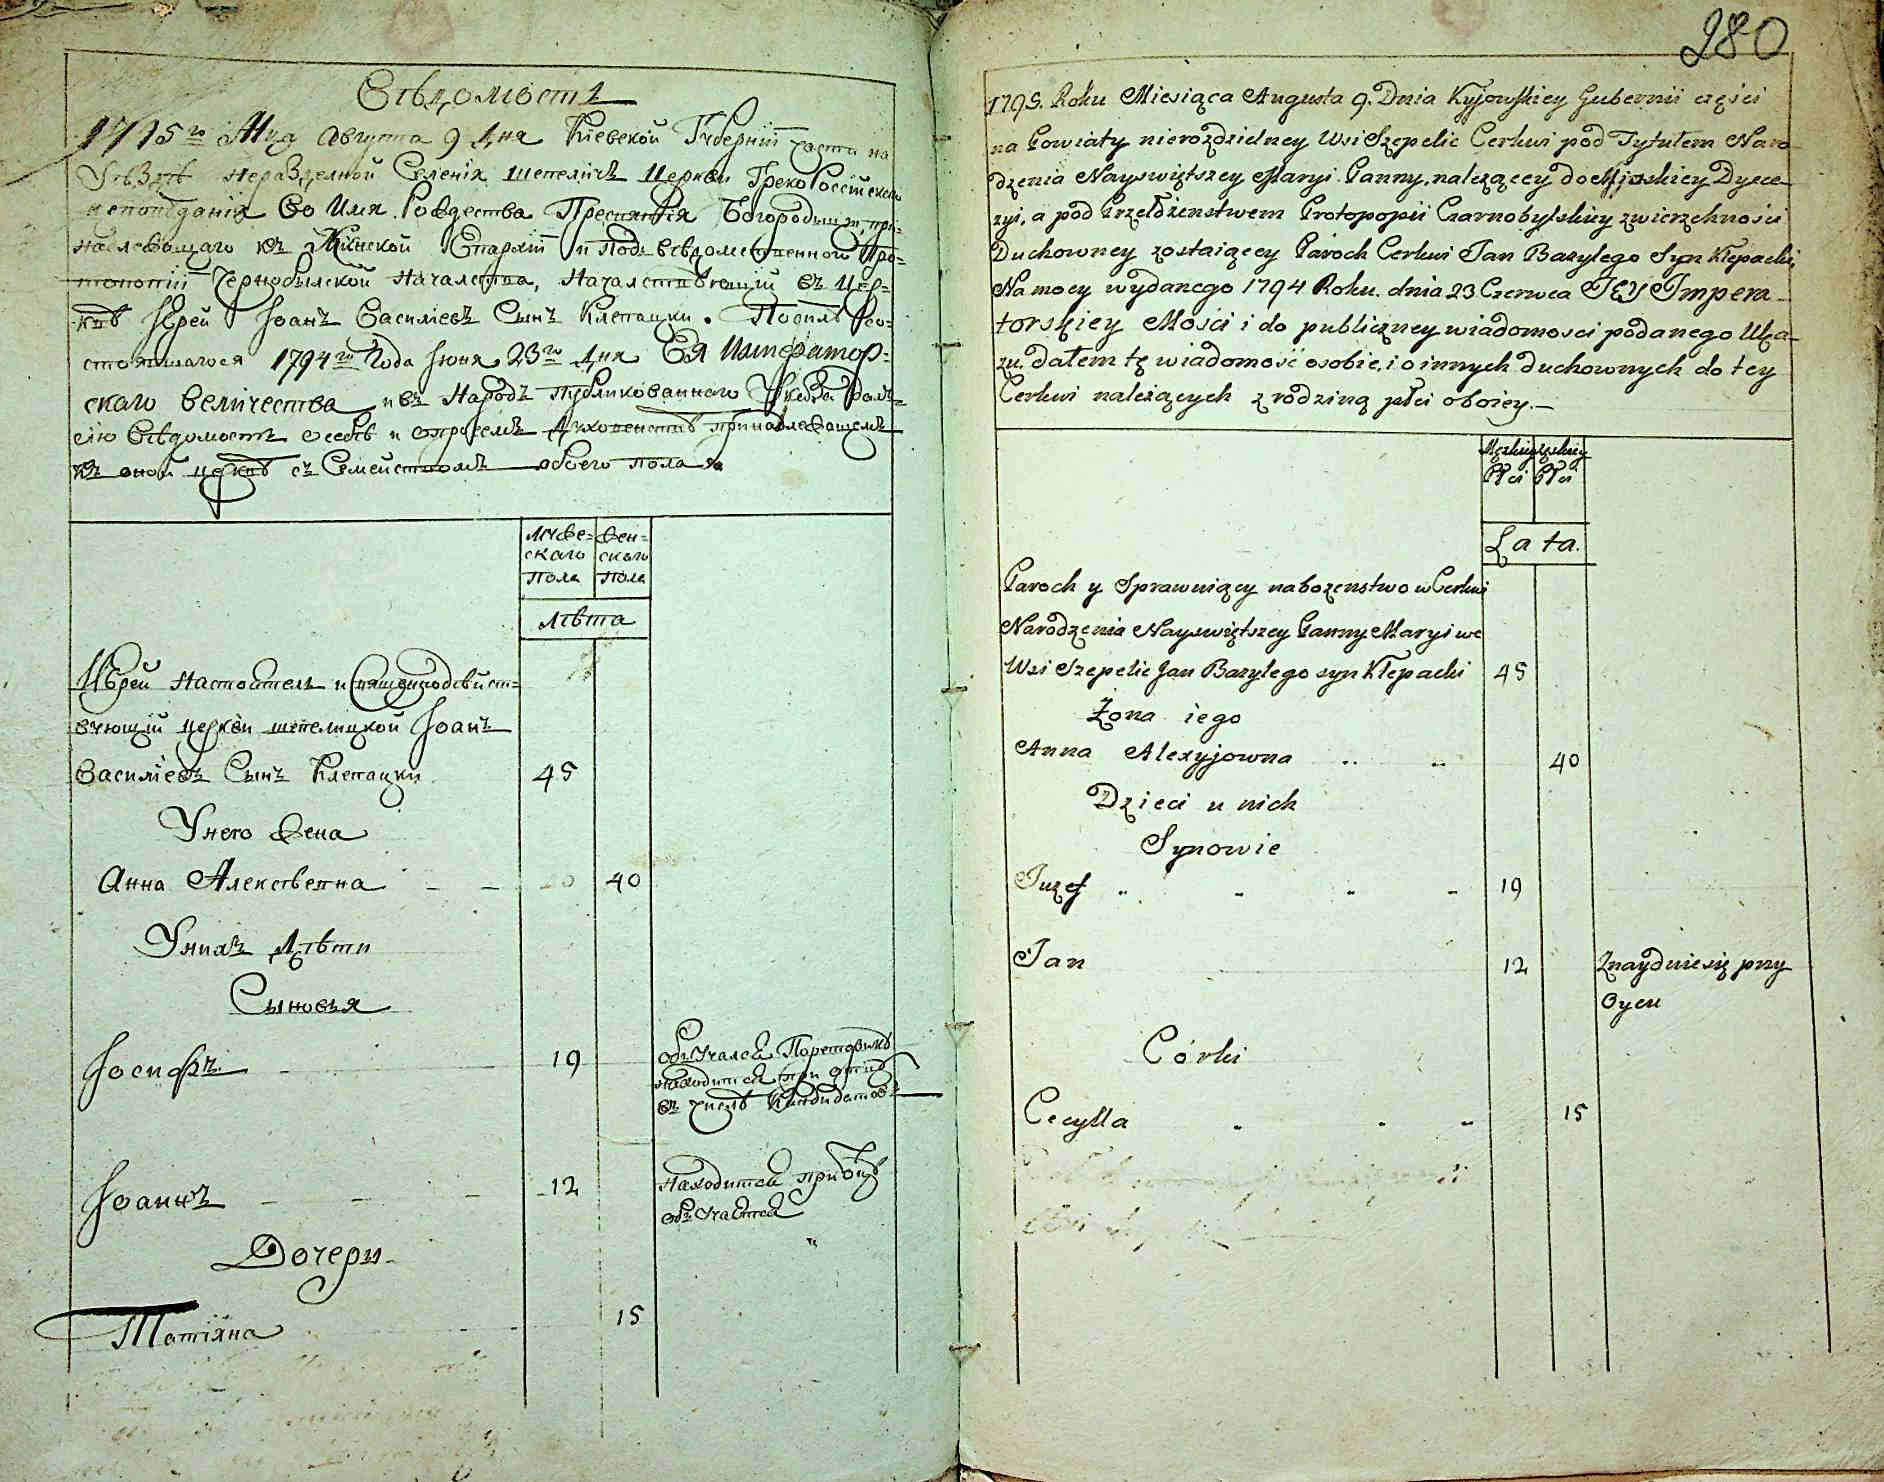 Вѣдомость
1795го Мца Августа 9 дня Кіевской Губерніи части на
Уѣзды нераздѣлной Селенія Шепеличъ Церкви Греко Россійскаго
исповѣданія Во Имя Рождества Пресвятыя Богородицы, при-
надлежащаго къ Минской Епархіи и подъ вѣдомственного Про-
топопіи Чернобылской началства, началствующій въ Цер-
квѣ Іерей Іоанъ Василіевъ Сынъ Клепацки. По силѣ со-
стоявшагося 1794го Года Іюня 23го дня Ея Император-
скаго величества и въ народъ публикованного Указа далъ
сію вѣдомость о себѣ и о протчемъ духовенствѣ принадлежащемъ
къ оной церквѣ съ Семействомъ обоего пола
муже-
скаго
пола
жен-
скаго
пола
лѣта
Іерей настоятель и священнодѣйст-
вующій церкви шепелицкой Іоанъ
Василіевъ Сынъ Клепацки 45
У него жена
Анна Алексѣевна 40
У нихъ дѣти
Сыновья
Іосифъ 19
находится при отцѣ
въ числѣ кандидатовъ
Іоаннъ 12 находится при отцѣ
обучается
Дочери
Татіяна 15
280
1795. Roku Miesiąca Augusta 9. Dnia Kyjowskiey Gubernii części
na Powiaty nierozdzielney Wsi Szepelic Cerkwi pod Tytułem Naro-
dzenia Nayswiętszey Maryi Panny, należącey do Mińskiey Dyece-
zyi, a pod Przełożenstwem Protopopii Czarnobylskiey zwierzchności
Duchowney zostaiącey Paroch Cerkwi Jan Bazylego Syn Klepacki,
Na mocy wydanego 1794 Roku. dnia 23 Czerwca JEY Impera-
torskiey Mości i do publiczney wiadomosci podanego Uka-
zu, dałem tę wiadomość o sobie, i o innych duchownych do tey
Cerkwi należących z rodziną płci oboiey.—
Męskiey
Płci
żeńskiey
Płci
Lata.
Paroch y Sprawuiący nabozenstwo w Cerkwi
Narodzenia Nayswiętszey Panny Maryi we
Wsi Szepelic Jan Bazylego syn Klepacki 45
Żona iego
Anna Alexyjowna 40
Dzieci u nich
Synowie
Juzef 19
Jan 12 Znayduie się przy
Oycu
Córki
Cecylla 15